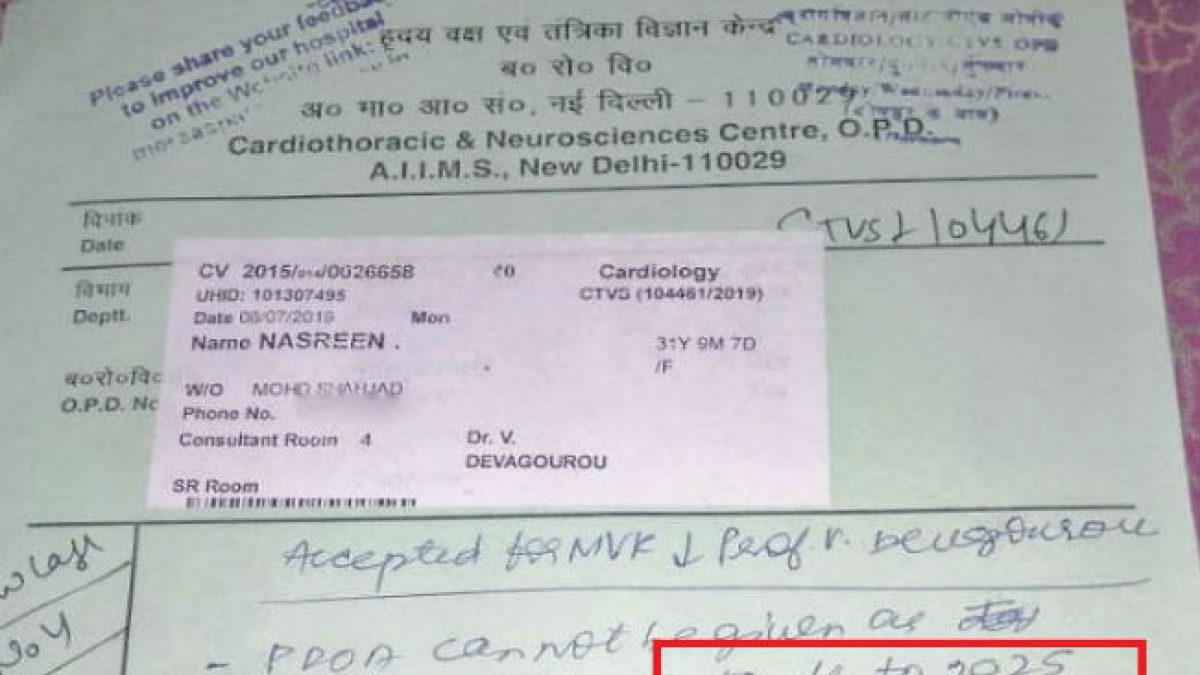 Please share your feedba
to improve our hospital
on the We link:
हृदय वक्ष एवं तंत्रिका विज्ञान केन्द्र
CARDIOLOGY CTVS OPD
ब० रो० वि०
अ० भा० आ० सं०, नई दिल्ली - 110029
Cardiothoracic & Neurosciences Centre, O.P.D.
A.I.I.M.S., New Delhi-110029
दिनांक
Date
CTVS 104461
CV 2015/014/0026658 ₹0 Cardiology
UHID: 101307495 CTVS (104461/2019)
विभाग
Deptt.
Date 08/07/2019 Mon
Name NASREEN . 31Y 9M 7D
/F
ब०रो०वि०
O.P.D. No
W/O MOHD SHAHJAD
Phone No.
Consultant Room 4 Dr. V.
DEVAGOUROU
SR Room
Accepted for MVR ↓ Prof V. Devagourou
- PDOA cannot be given as
to 2025